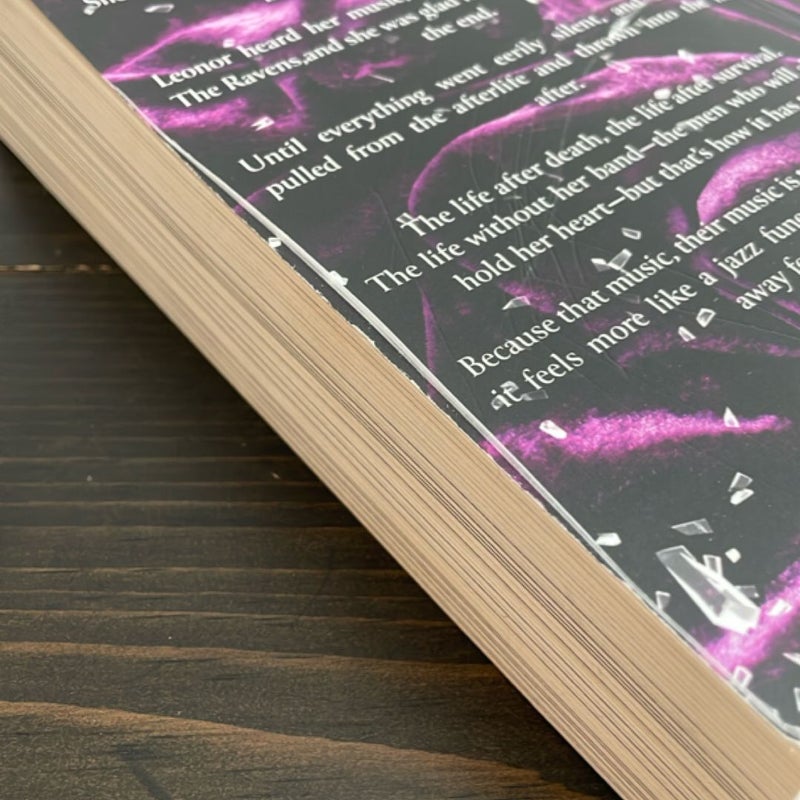 Leonor heard her music,
The Ravens,and she was glad
the end.
Until everything went eerily silent, and
pulled from the afterlife and thrown into the
after.
The life after death, the life after survival.
The life without her band—the men who will
hold her heart—but that's how it has
Because that music, their music is
it feels more like a jazz
away